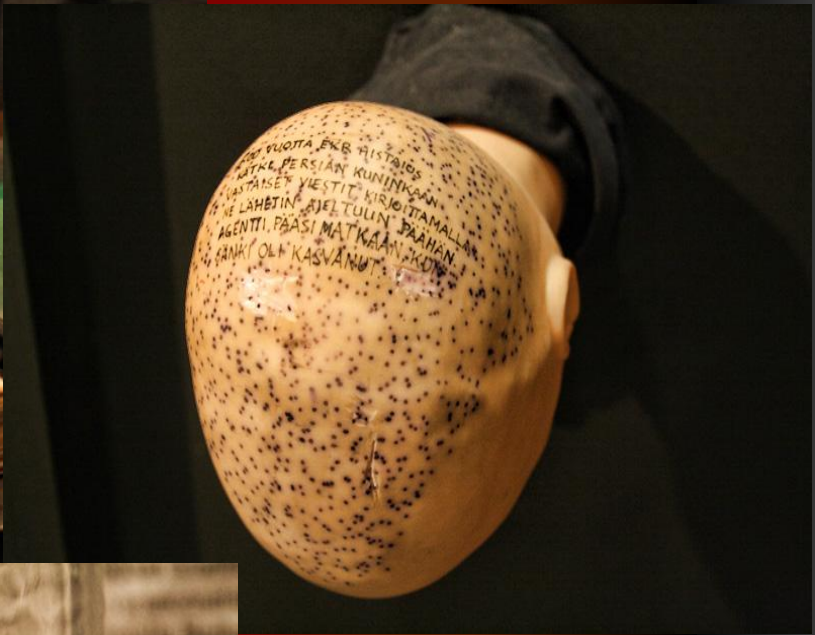 500 VUOTTA EKR HISTAIOS
KÄTKI PERSIAN KUNINKAAN
VASTAISET VIESTIT KIRJOITTAMALLA
NE LÄHETIN AJELTUUN PÄÄHÄN.
AGENTTI PÄÄSI MATKAAN, KUN
OLI KASVANUT.